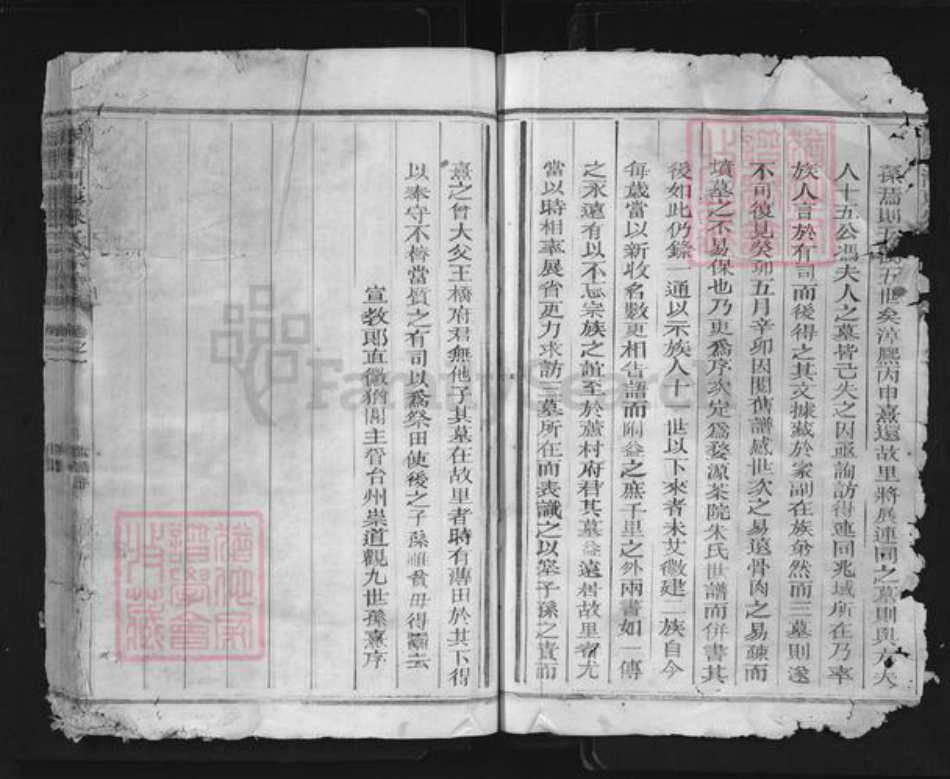 孫焉則十五世矣淳熙丙申熹還故里將展連同之墓則與方夫
人十五公馮夫人之墓皆已失之因亟詢訪得連同兆域所在乃率
族人言於有司而後得之其文據藏於家副在族弟然而三墓則遂
不可復見癸卯五月辛卯因閱舊譜感世次之易遠骨肉之易疎而
墳墓之不易保也乃更爲序次定爲婺源茶院朱氏世譜而併書其
後如此仍錄一通以示族人十一世以下來者未艾徽建二族自今
每歲當以新收名數更相告語而附益之庶千里之外兩書如一傳
之永遠有以不忘宗族之誼至於蘆村府君其墓益遠居故里者尤
當以時相率展省更力求訪三墓所在而表識之以寧子孫之責而
熹之曾大父王橋府君無他子其墓在故里者時有薄田於其下得
以奉守不替當質之有司以爲祭田使後之子孫雖貧毋得鬻云
宣教郎直徽猶閣主管台州崇道觀九世孫熹序
FamilySearch